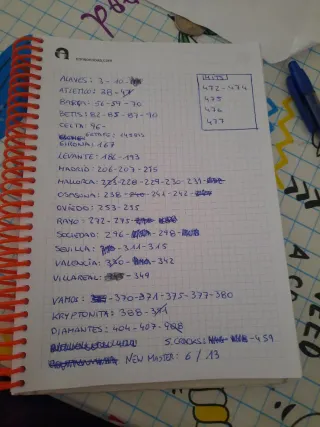 ALAVES: 3-10-
ATLETICO: 38-47
BARÇA: 56-59-70
BETIS: 82-85-87-90
CELTA: 96-
GIRONA: 167
LEVANTE: 186-193
MADRID: 206-207-215
MALLORCA: 223-228-229-230-231-
OSASUNA: 238-241-242-
OVIEDO: 253-255
RAYO: 272-275-
SOCIEDAD: 296-298-
SEVILLA: 311-315
VALENCIA: 330-342
VILLAREAL: 349
VAMOS: 370-371-375-377-380
KRYPTONITA: 388-391
DIAMANTES: 404-407-408
S. CRACKS: 459
NEW MASTER: 6/13
472-474
475
476
477